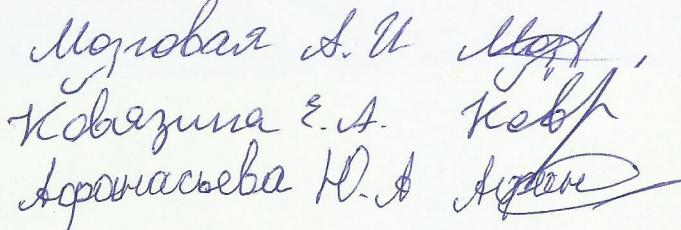 Мозговая А.И
Ковязина Е.А.
Афанасьева Ю.А Афан